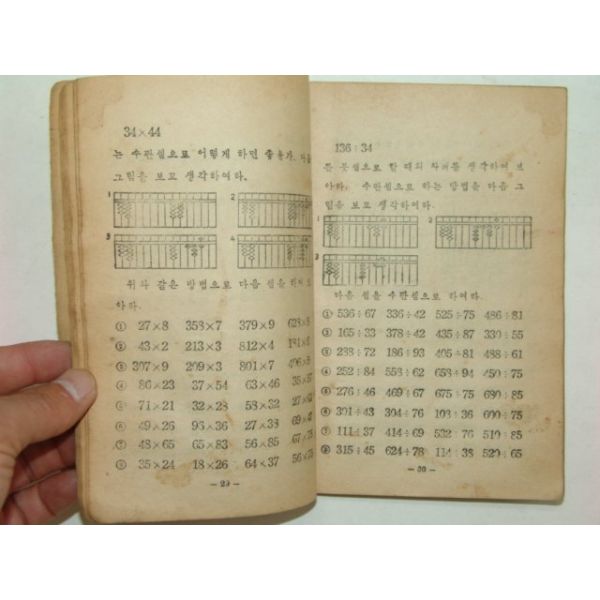 34×44
는 수판셈으로 어떻게 하면 좋을가, 다음
그림을 보고 생각하여라.
1 2
3 4
위와 같은 방법으로 다음 셈을 하여 보
아라.
① 27×8 358×7 379×9 628×
② 43×2 213×3 812×4 181×
③ 307×9 209×3 801×7 406×
④ 86×23 37×54 63×46 35×
⑤ 71×21 32×28 58×32 27×
⑥ 49×26 93×36 27×38 69×
⑦ 48×65 65×83 56×85 67×
⑧ 35×24 18×26 64×37 56×
— 29 —
136÷34
를 붓셈으로 할 때의 차례를 생각하여 보
아라. 수판셈으로 하는 방법을 다음 그
림을 보고 생각하여라.
1 2
3
다음 셈을 수판셈으로 하여라.
① 536÷67 336÷42 525÷75 486÷81
② 165÷33 378÷42 435÷87 330÷55
③ 288÷72 186÷93 405÷81 488÷61
④ 252÷84 558÷62 658÷94 450÷75
⑤ 276÷46 469÷67 675÷75 680÷85
⑥ 301÷43 304÷76 108÷36 600÷75
⑦ 111÷37 414÷69 532÷76 510÷85
⑧ 315÷45 624÷78 114÷38 520÷65
— 30 —